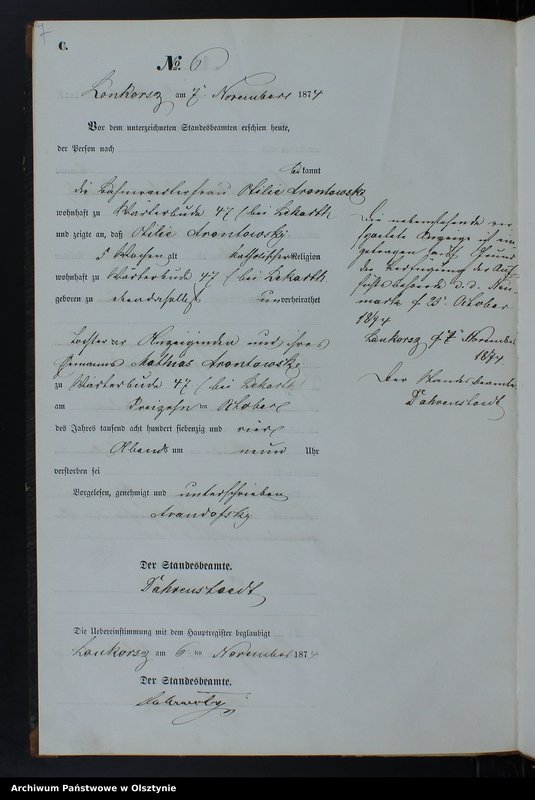 7
C.
№ 6
Lonkorsz am 7 November 1874
Vor dem unterzeichneten Standesbeamten erschien heute,
der Person nach
bekannt
die Bahnwärterfrau Otilie Arontowska
wohnhaft zu Wärterbude 47 (bei Lekarth
und zeigte an, daß Otilie Arontowsky
5 Wochen alt katholischer Religion
wohnhaft zu Wärterbude 47 (bei Lekarth
geboren zu ebendaselbst unverheirathet
Tochter der Anzeigenden und ihres
Ehemannes Mathias Arontowsky
zu Wärterbude 47 (bei Lekarth)
am Dreizehnten Oktober
des Jahres tausend acht hundert siebenzig und vier
Abends um neun Uhr
verstorben sei
Vorgelesen, genehmigt und unterschrieben
Arandofsky
Der Standesbeamte.
Fahrenstaedt
Die Uebereinstimmung mit dem Hauptregister beglaubigt
Lonkorsz am 6 ten November 1874
Der Standesbeamte.
Die nebenstehende ver
spätete Anzeige ist ein
getragen
der Verfügung der Auf
sichtsbehörde d. d. Neu
mark d 25 October
1874
Lonkorsz d 7 November
1874.
Der Standesbeamte
Fahrenstaedt
Archiwum Państwowe w Olsztynie